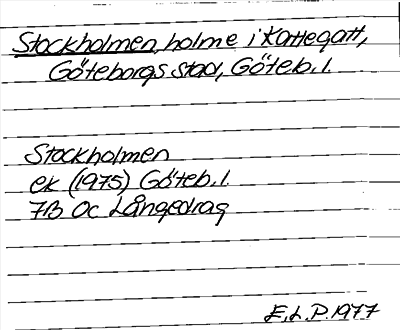 Stockholmen, holme i Kattegatt,
Göteborgs stad, Göteb. l.
Stockholmen
ek (1975) Göteb. l.
7B 0c Långedrag
E.L.P. 1977